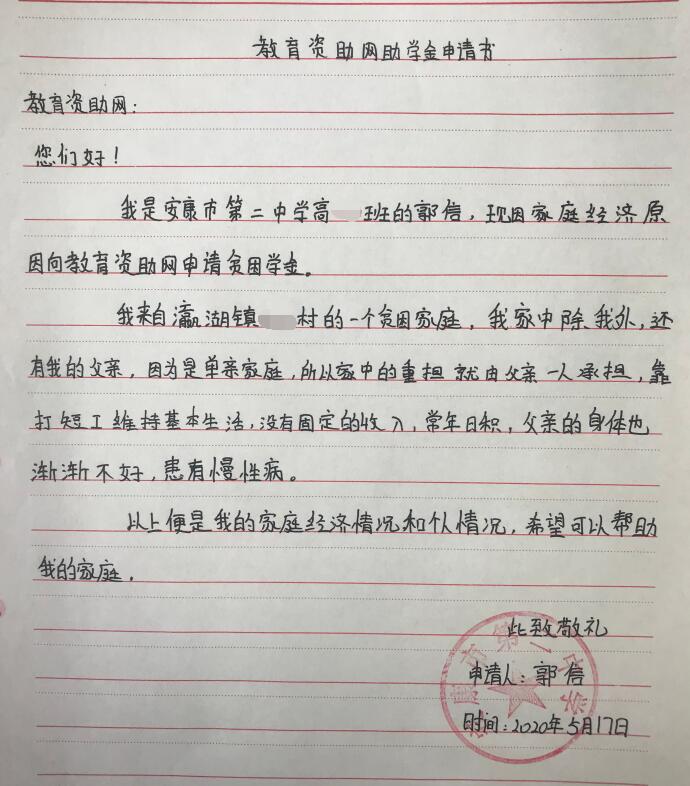 教育资助网助学金申请书
教育资助网：
您们好！
我是安康市第二中学高 班的郭信，现因家庭经济原
因向教育资助网申请贫困学金。
我来自瀛湖镇 村的一个贫困家庭，我家中除我外，还
有我的父亲，因为是单亲家庭，所以家中的重担就由父亲一人承担，靠
打短工维持基本生活，没有固定的收入，常年日积，父亲的身体也
渐渐不好，患有慢性病。
以上便是我的家庭经济情况和个人情况，希望可以帮助
我的家庭。
此致敬礼
申请人：郭信
时间：2020年5月17日